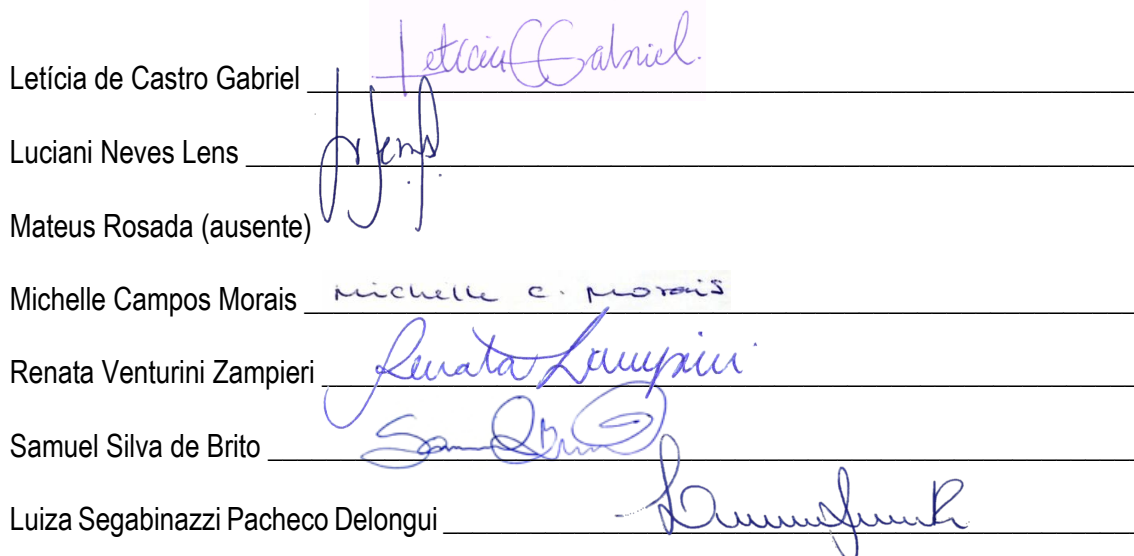 Letícia de Castro Gabriel LetíciaCGabriel.
Luciani Neves Lens
Mateus Rosada (ausente)
Michelle Campos Morais Michelle C. Morais
Renata Venturini Zampieri Renata Zampieri
Samuel Silva de Brito
Luiza Segabinazzi Pacheco Delongui